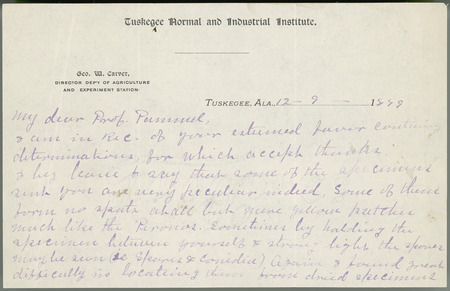 Tuskegee Normal and Industrial Institute.
Geo. W. Carver,
DIRECTOR DEP'T OF AGRICULTURE
AND EXPERIMENT STATION
TUSKEGEE, ALA. 12 - 9 - 1899
My dear Prof. Pammel,
I am in Rec. of your esteemed favor containing
determinations, for which accept thanks.
I beg leave to say that some of the specimens
sent you are very peculiar indeed, Some of them
form no spots at all but mere yellow patches
much like the Peronos. Sometimes by holding the
specimen between yourself & strong light the spores
may be seen (ie Spores & Conidia) Again I found great
difficulty in locating them from dried specimens